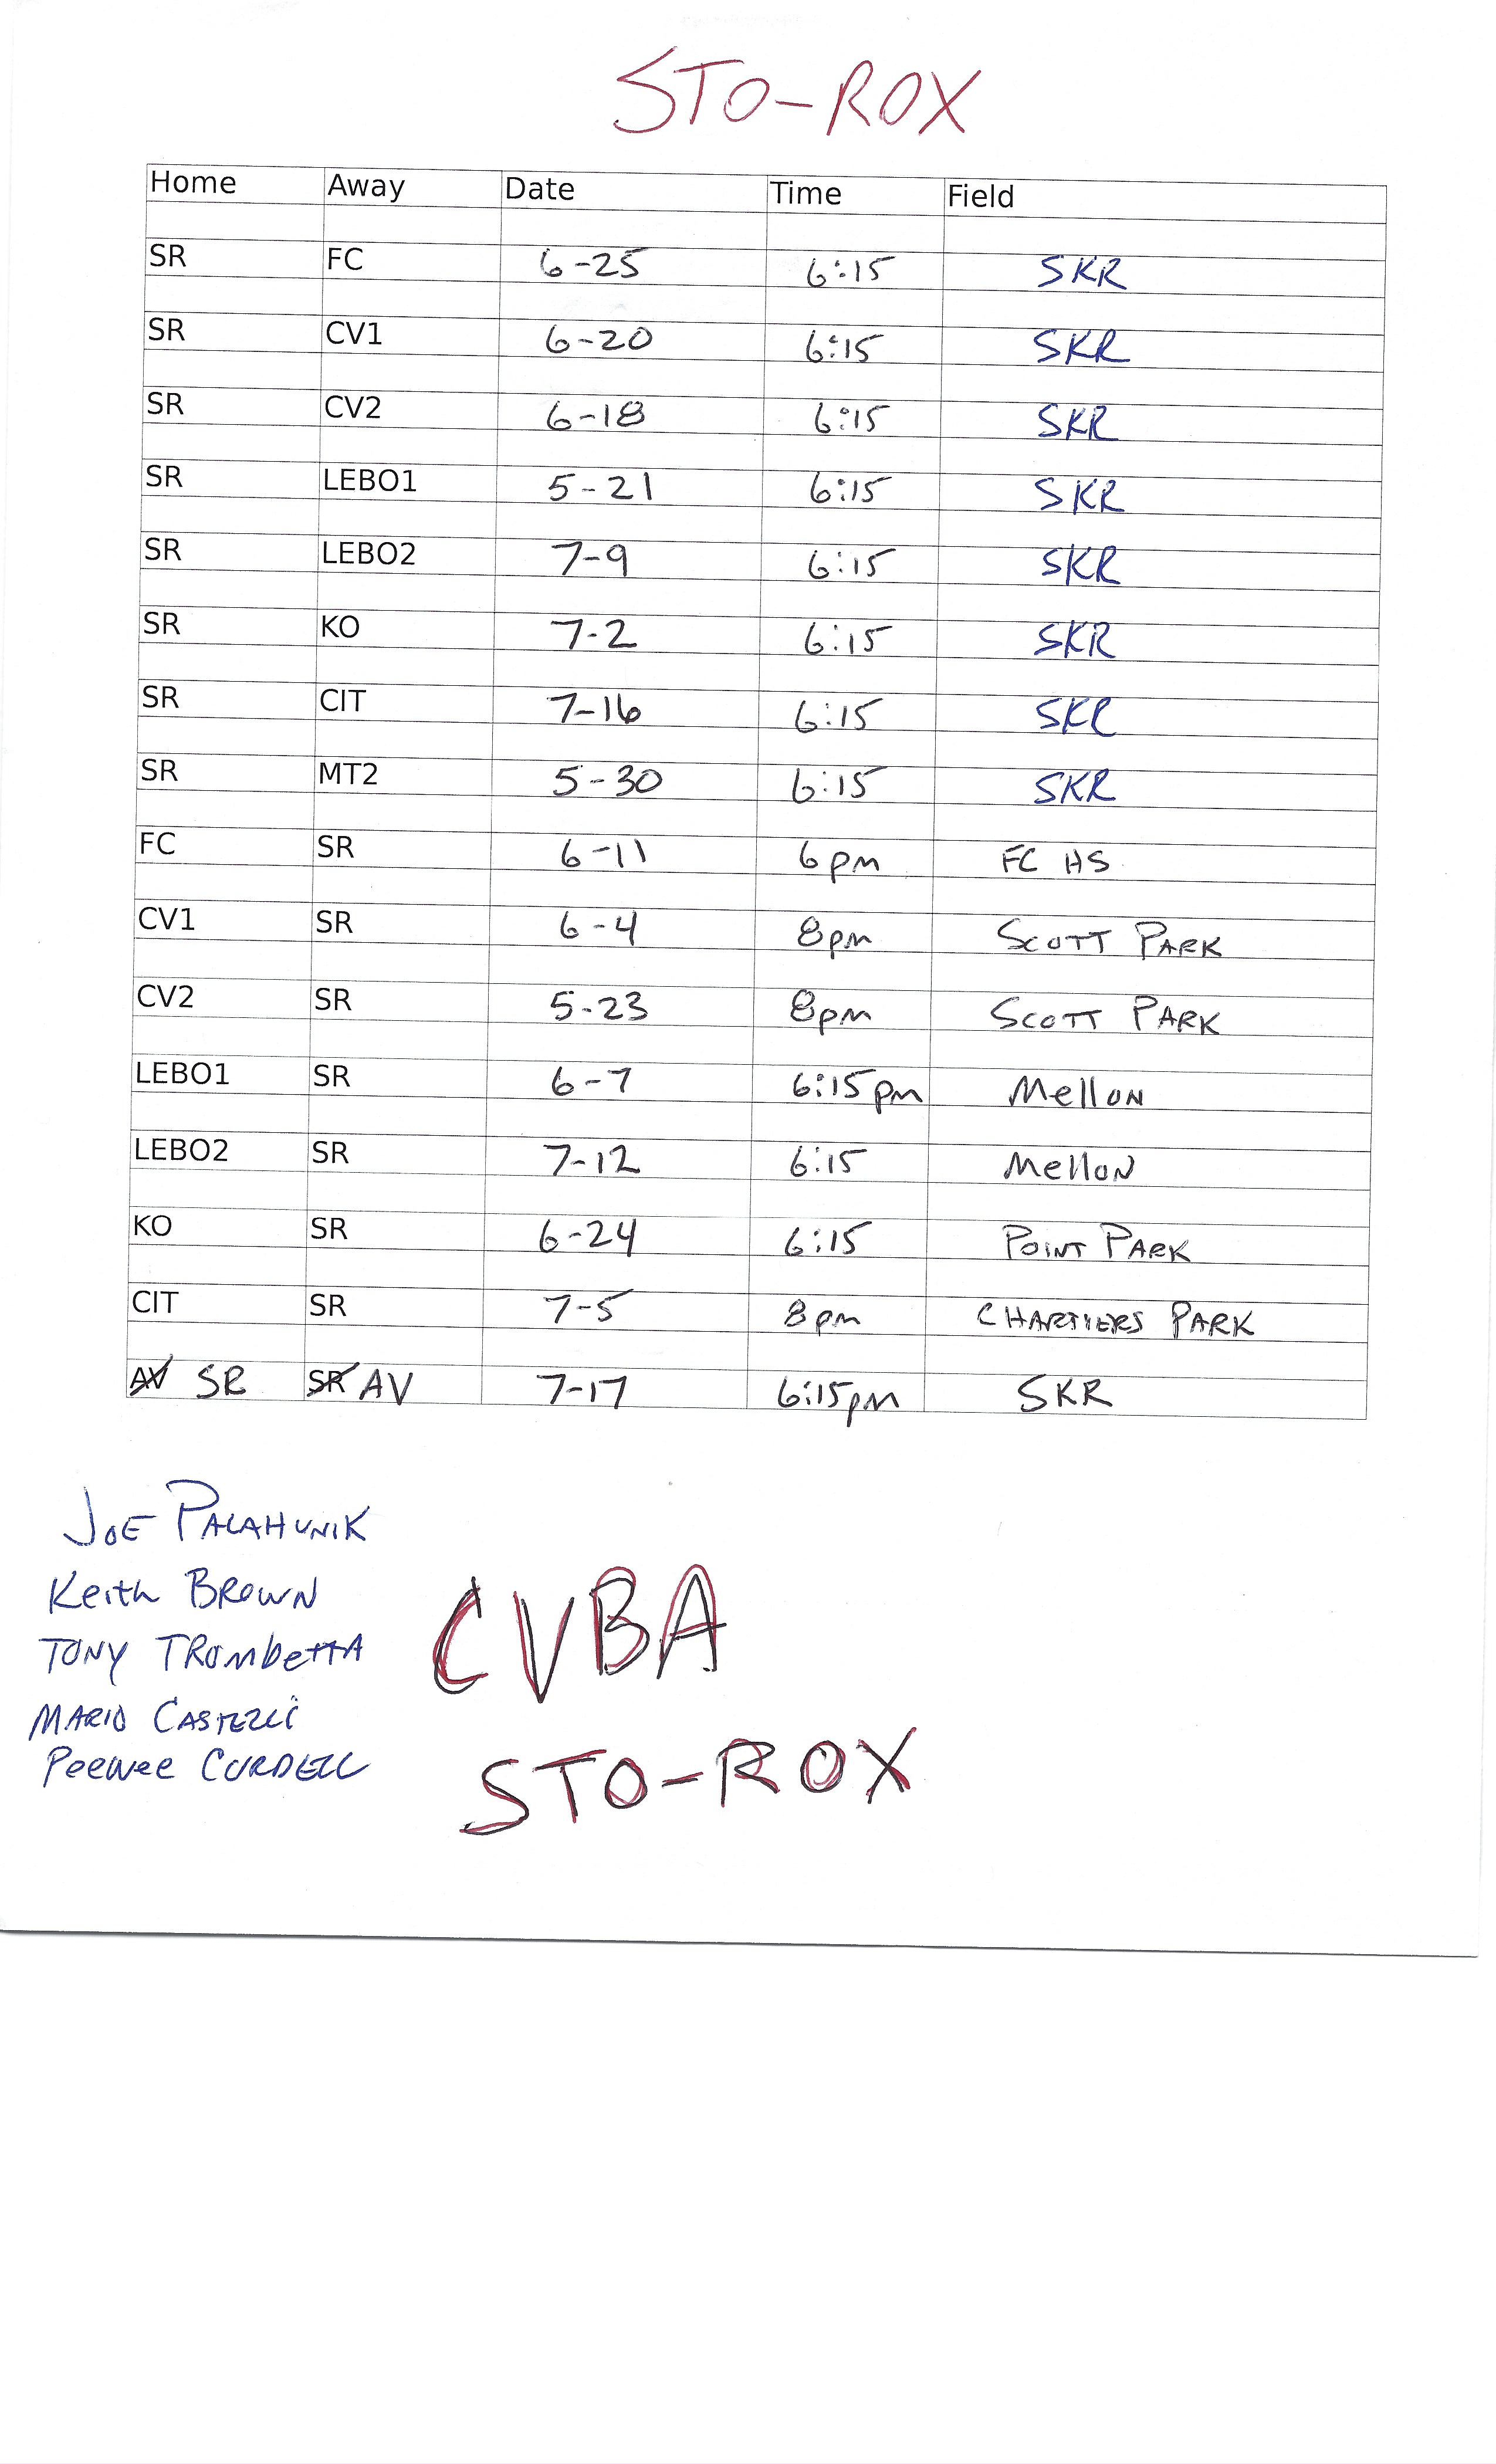 STO-ROX
Home Away Date Time Field
SR FC 6-25 6:15 SKR
SR CV1 6-20 6:15 SKR
SR CV2 6-18 6:15 SKR
SR LEBO1 5-21 6:15 SKR
SR LEBO2 7-9 6:15 SKR
SR KO 7-2 6:15 SKR
SR CIT 7-16 6:15 SKR
SR MT2 5-30 6:15 SKR
FC SR 6-11 6pm FC HS
CV1 SR 6-4 8pm SCOTT PARK
CV2 SR 5-23 8pm SCOTT PARK
LEBO1 SR 6-7 6:15pm Mellon
LEBO2 SR 7-12 6:15 Mellon
KO SR 6-24 6:15 POINT PARK
CIT SR 7-5 8pm CHARTIERS PARK
AV SR SR AV 7-17 6:15pm SKR
JOE PALAHUNIK
Keith BROWN
TONY TROMBETTA
MARIO CASTELLI
Peewee CORDELL
CVBA
STO-ROX